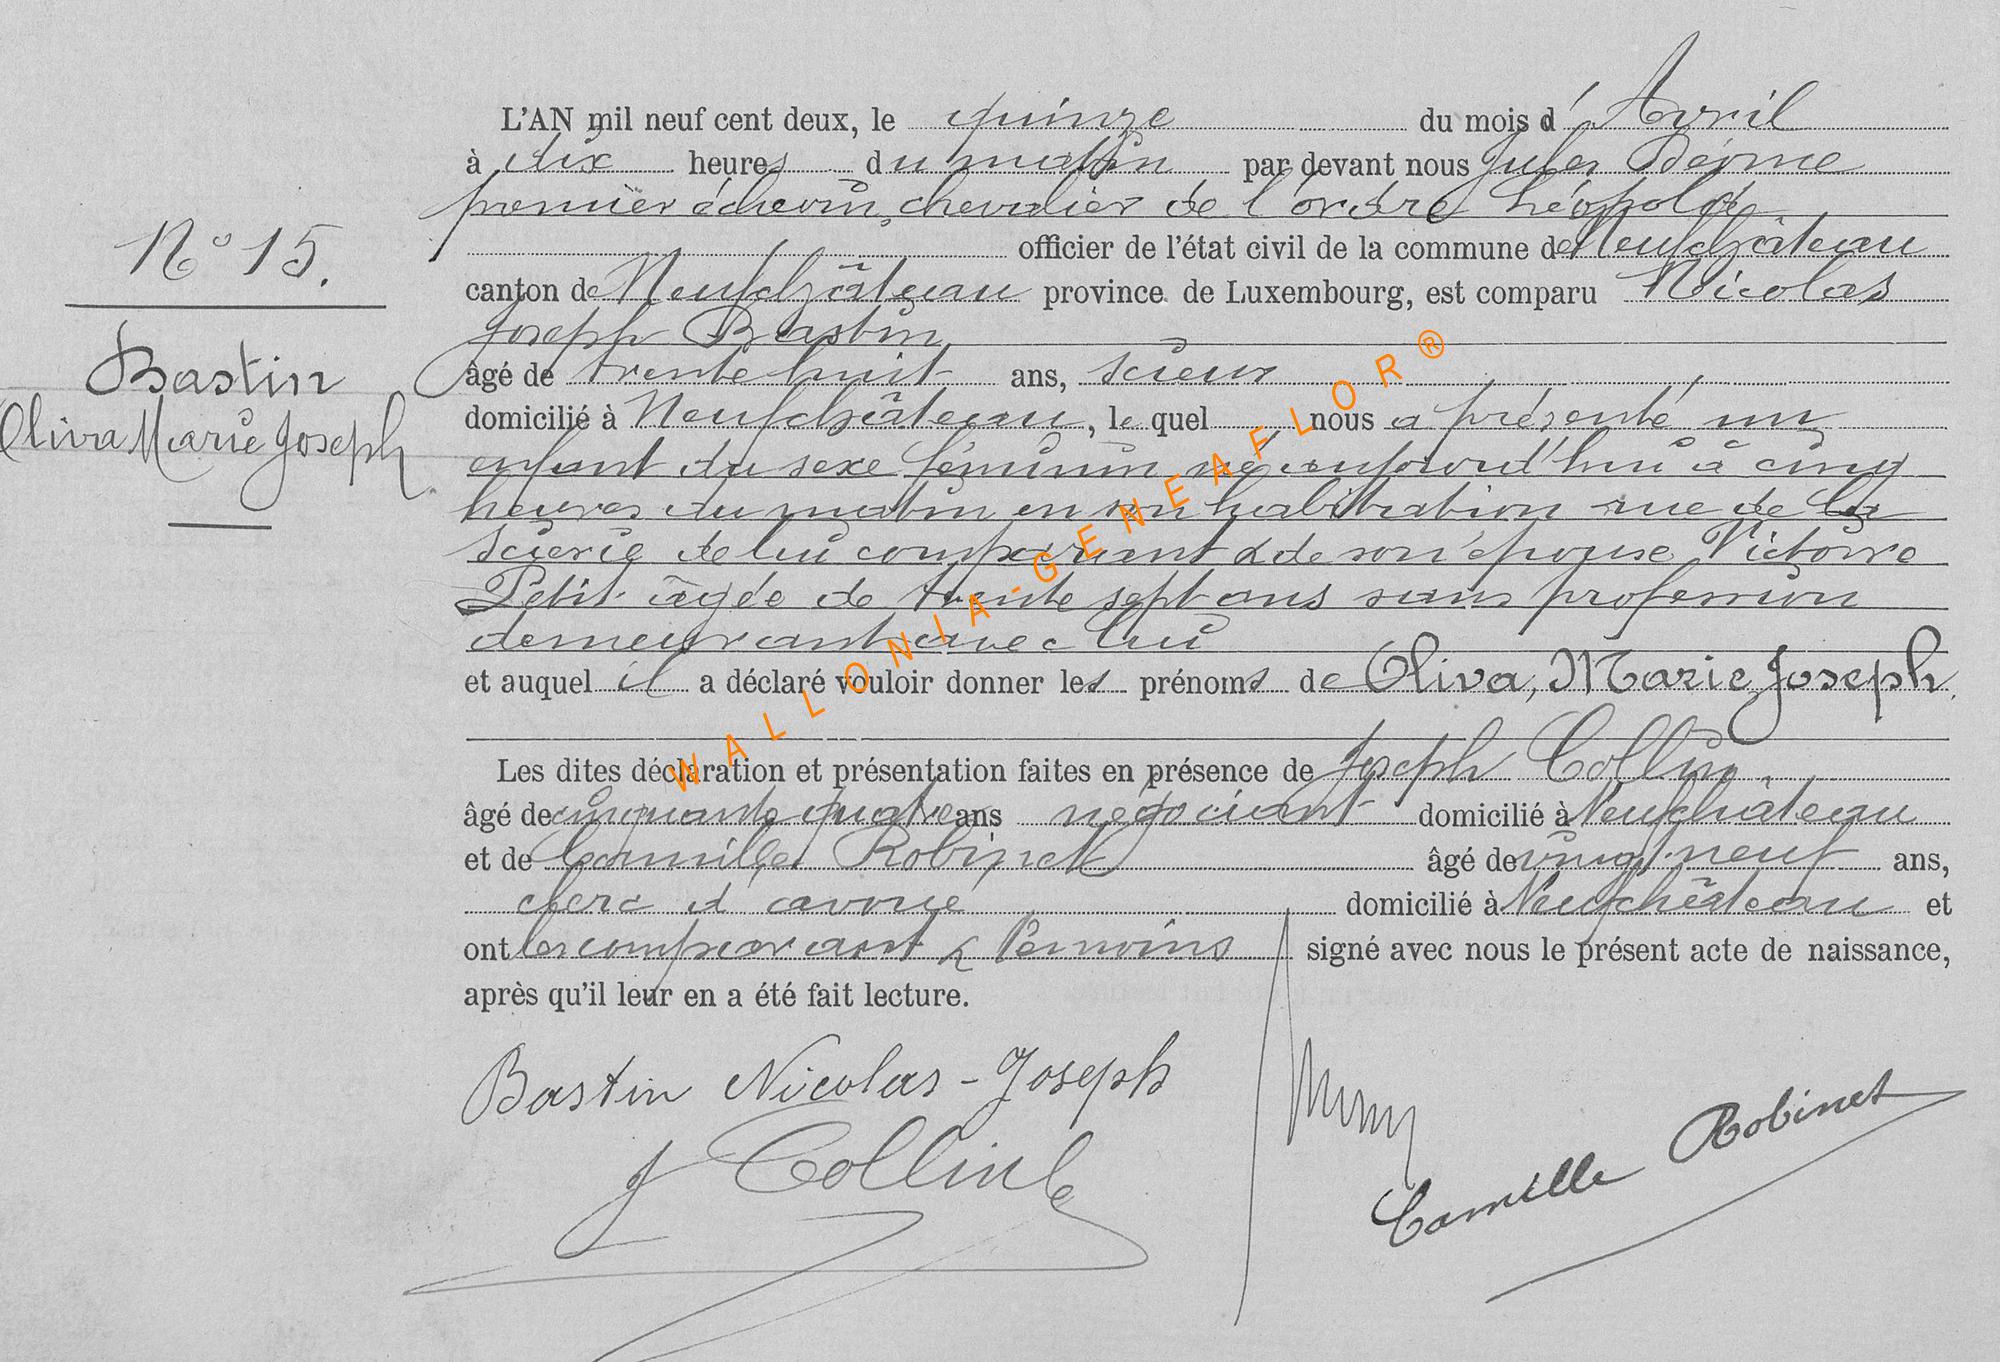 N° 15.
Bastin
Oliva Marie Joseph.
L'AN mil neuf cent deux, le quinze du mois d'Avril
à dix heures du matin par devant nous Jules
premier échevin, chevalier de l'ordre Léopold
officier de l'état civil de la commune de Neufchâteau
canton de Neufchâteau province de Luxembourg, est comparu Nicolas
Joseph Bastin
âgé de trente huit ans, scieur
domicilié à Neufchâteau, le quel nous a présenté un
enfant du sexe féminin né aujourd'hui à cinq
heures du matin en son habitation rue de la
scierie de lui comparant & de son épouse Victoire
Petit âgée de trente sept ans sans profession
demeurant avec lui
et auquel il a déclaré vouloir donner les prénoms de Oliva, Marie Joseph.
Les dites déclaration et présentation faites en présence de Joseph Collin
âgé de cinquante quatre ans négociant domicilié à Neufchâteau
et de Camille Robinet âgé de vingt neuf ans,
clerc d'avoué domicilié à Neufchâteau et
ont les comparant & témoins signé avec nous le présent acte de naissance,
après qu'il leur en a été fait lecture.
Bastin Nicolas-Joseph
J Collin
Camille Robinet
WALLONIA-GENEAFLOR®